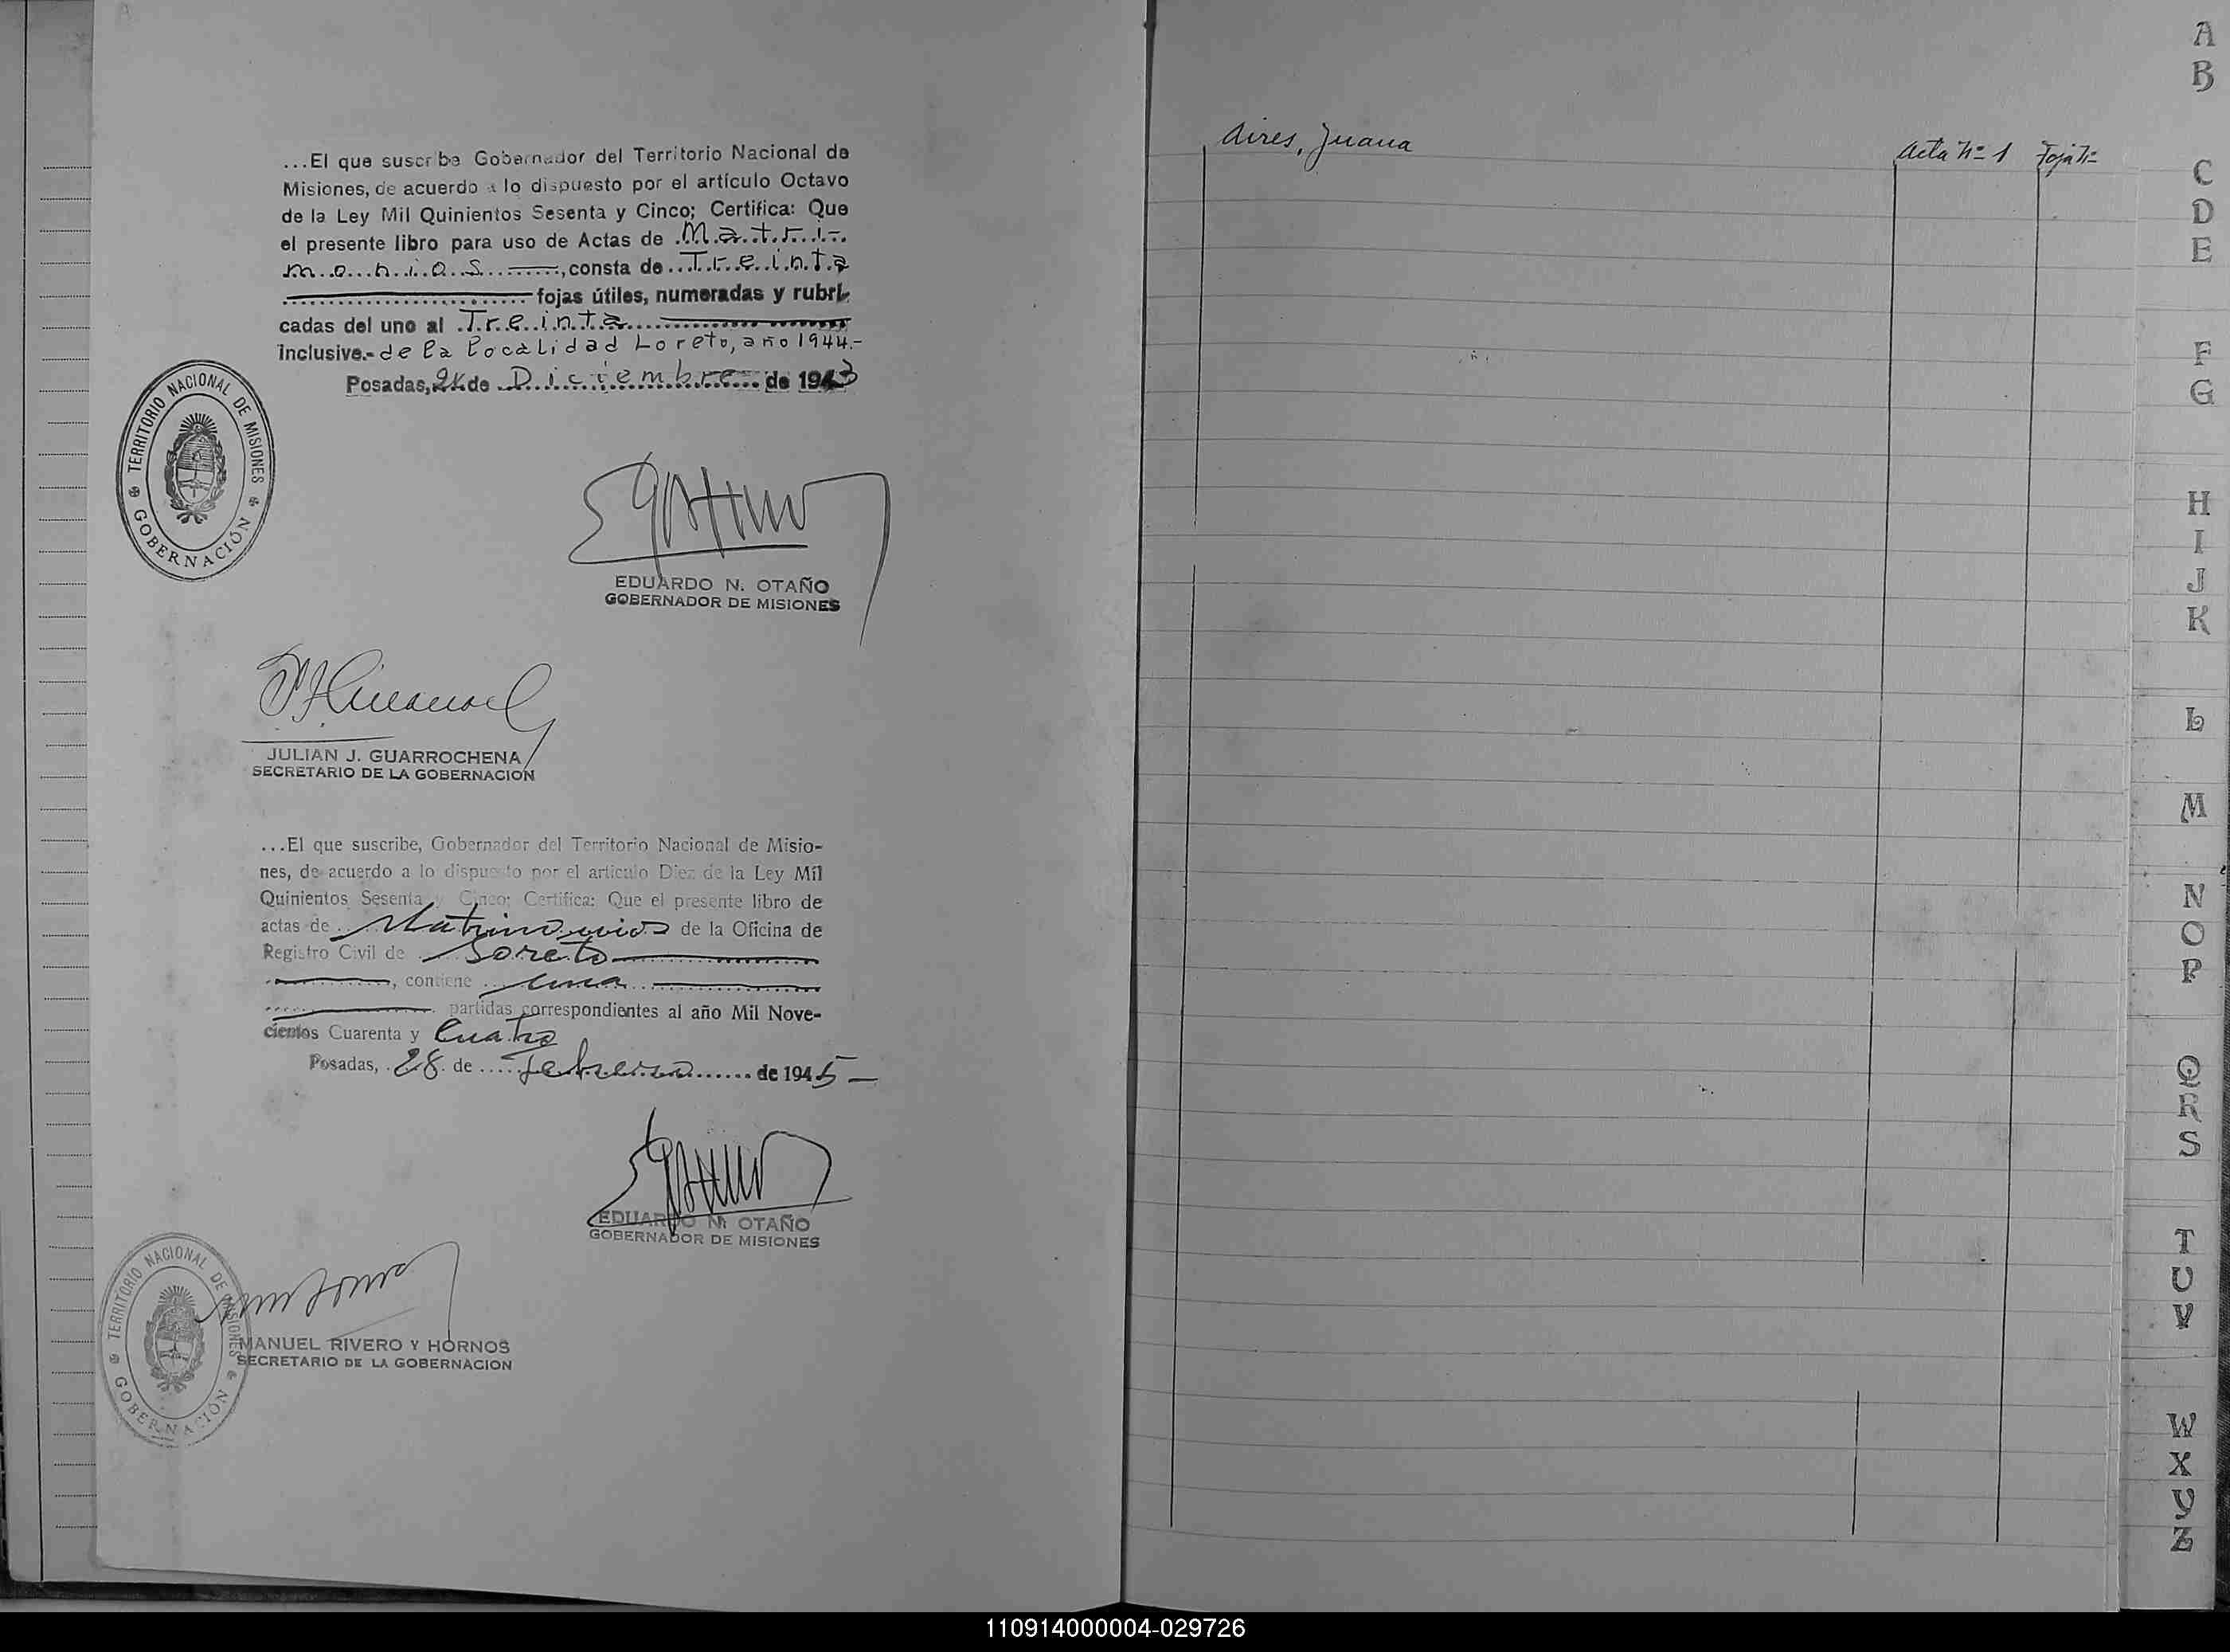 ...El que suscribe Gobernador del Territorio Nacional de
Misiones, de acuerdo a lo dispuesto por el artículo Octavo
de la Ley Mil Quinientos Sesenta y Cinco; Certifica: Que
el presente libro para uso de Actas de Matri-
monios, consta de Treinta
fojas útiles, numeradas y rubri-
cadas del uno al Treinta
inclusive.- de la localidad Loreto, año 1944.-
Posadas, de Diciembre de 1943
TERRITORIO NACIONAL DE MISIONES
GOBERNACIÓN
EDUARDO N. OTAÑO
GOBERNADOR DE MISIONES
JULIAN J. GUARROCHENA
SECRETARIO DE LA GOBERNACION
...El que suscribe, Gobernador del Territorio Nacional de Misio-
nes, de acuerdo a lo dispuesto por el artículo Diez de la Ley Mil
Quinientos Sesenta y Cinco; Certifica: Que el presente libro de
actas de Matrimonios de la Oficina de
Registro Civil de Loreto
, contiene una
partidas correspondientes al año Mil Nove-
cientos Cuarenta y Cuatro
Posadas, 28 de Febrero de 1945-
EDUARDO N. OTAÑO
GOBERNADOR DE MISIONES
TERRITORIO NACIONAL DE MISIONES
GOBERNACIÓN
MANUEL RIVERO Y HORNOS
SECRETARIO DE LA GOBERNACION
Aires, Juana Acta Nº 1 Foja Nº
A
B
C
D
E
F
G
H
I
J
K
L
M
N
O
P
Q
R
S
T
U
V
W
X
Y
Z
110914000004-029726